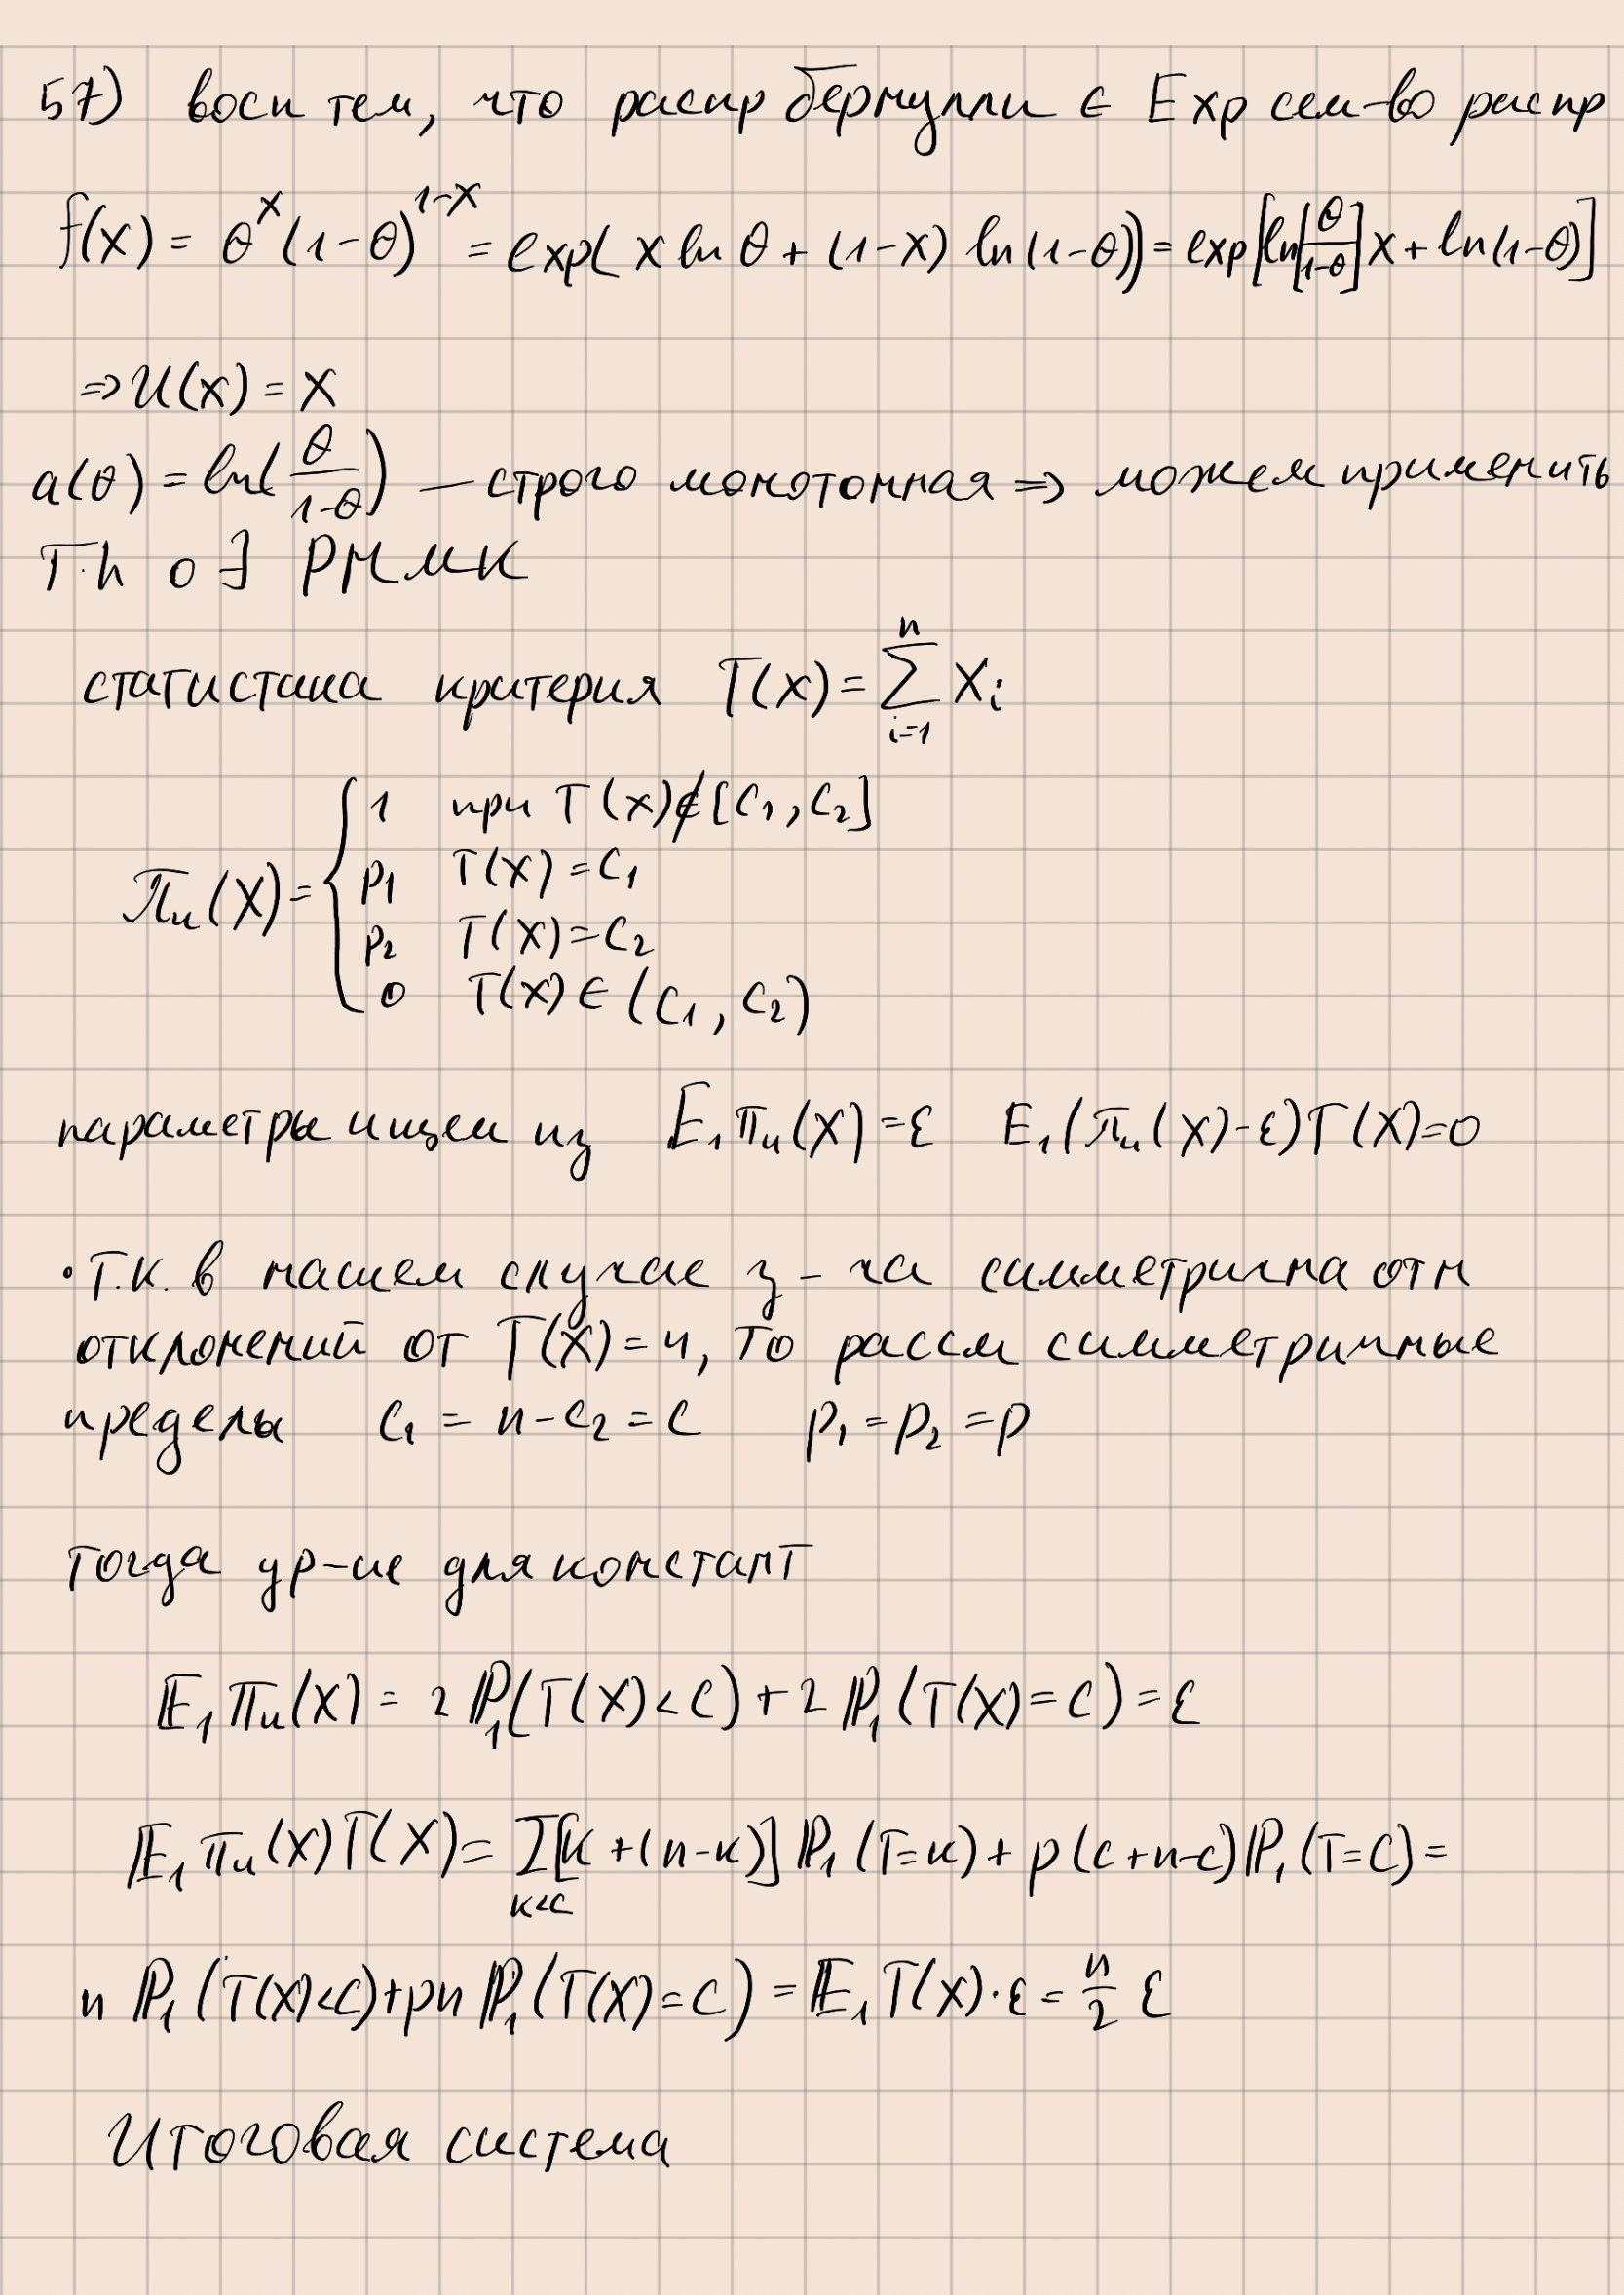 57) восп тем, что распр бернулли ∈ Exp сем-во распр
f(x) = θ^x (1-θ)^{1-x} = exp( x ln θ + (1-x) ln(1-θ)) = exp[ln[θ/(1-θ)]x + ln(1-θ)]
⇒ U(x) = x
a(θ) = ln(θ/(1-θ)) — строго монотонная ⇒ можем применить
Th о ∃ РНМК
статистика критерия T(x) = ∑_{i=1}^{n} X_i
π_н(X) = { 1 при T(x)∉[C_1, C_2]
p_1 T(X) = C_1
p_2 T(X) = C_2
0 T(x) ∈ (C_1, C_2)
параметры ищем из E_1 π_н(X) = ε E_1(π_н(X)-ε)T(X)=0
• т.к. в нашем случае з-ча симметрична отн
отклонений от T(X) = 4, то рассм симметричные
пределы C_1 = n - C_2 = C p_1 = p_2 = p
тогда ур-ие для констант
E_1 π_н(X) = 2 P_1(T(X) < C) + 2 P_1(T(X) = C) = ε
E_1 π_н(X) T(X) = ∑_{k<c} [k + (n-k)] P_1(T=k) + p(c+n-c) P_1(T=C) =
n P_1(T(X)<C) + pn P_1(T(X)=C) = E_1 T(X)·ε = n/2 ε
Итоговая система